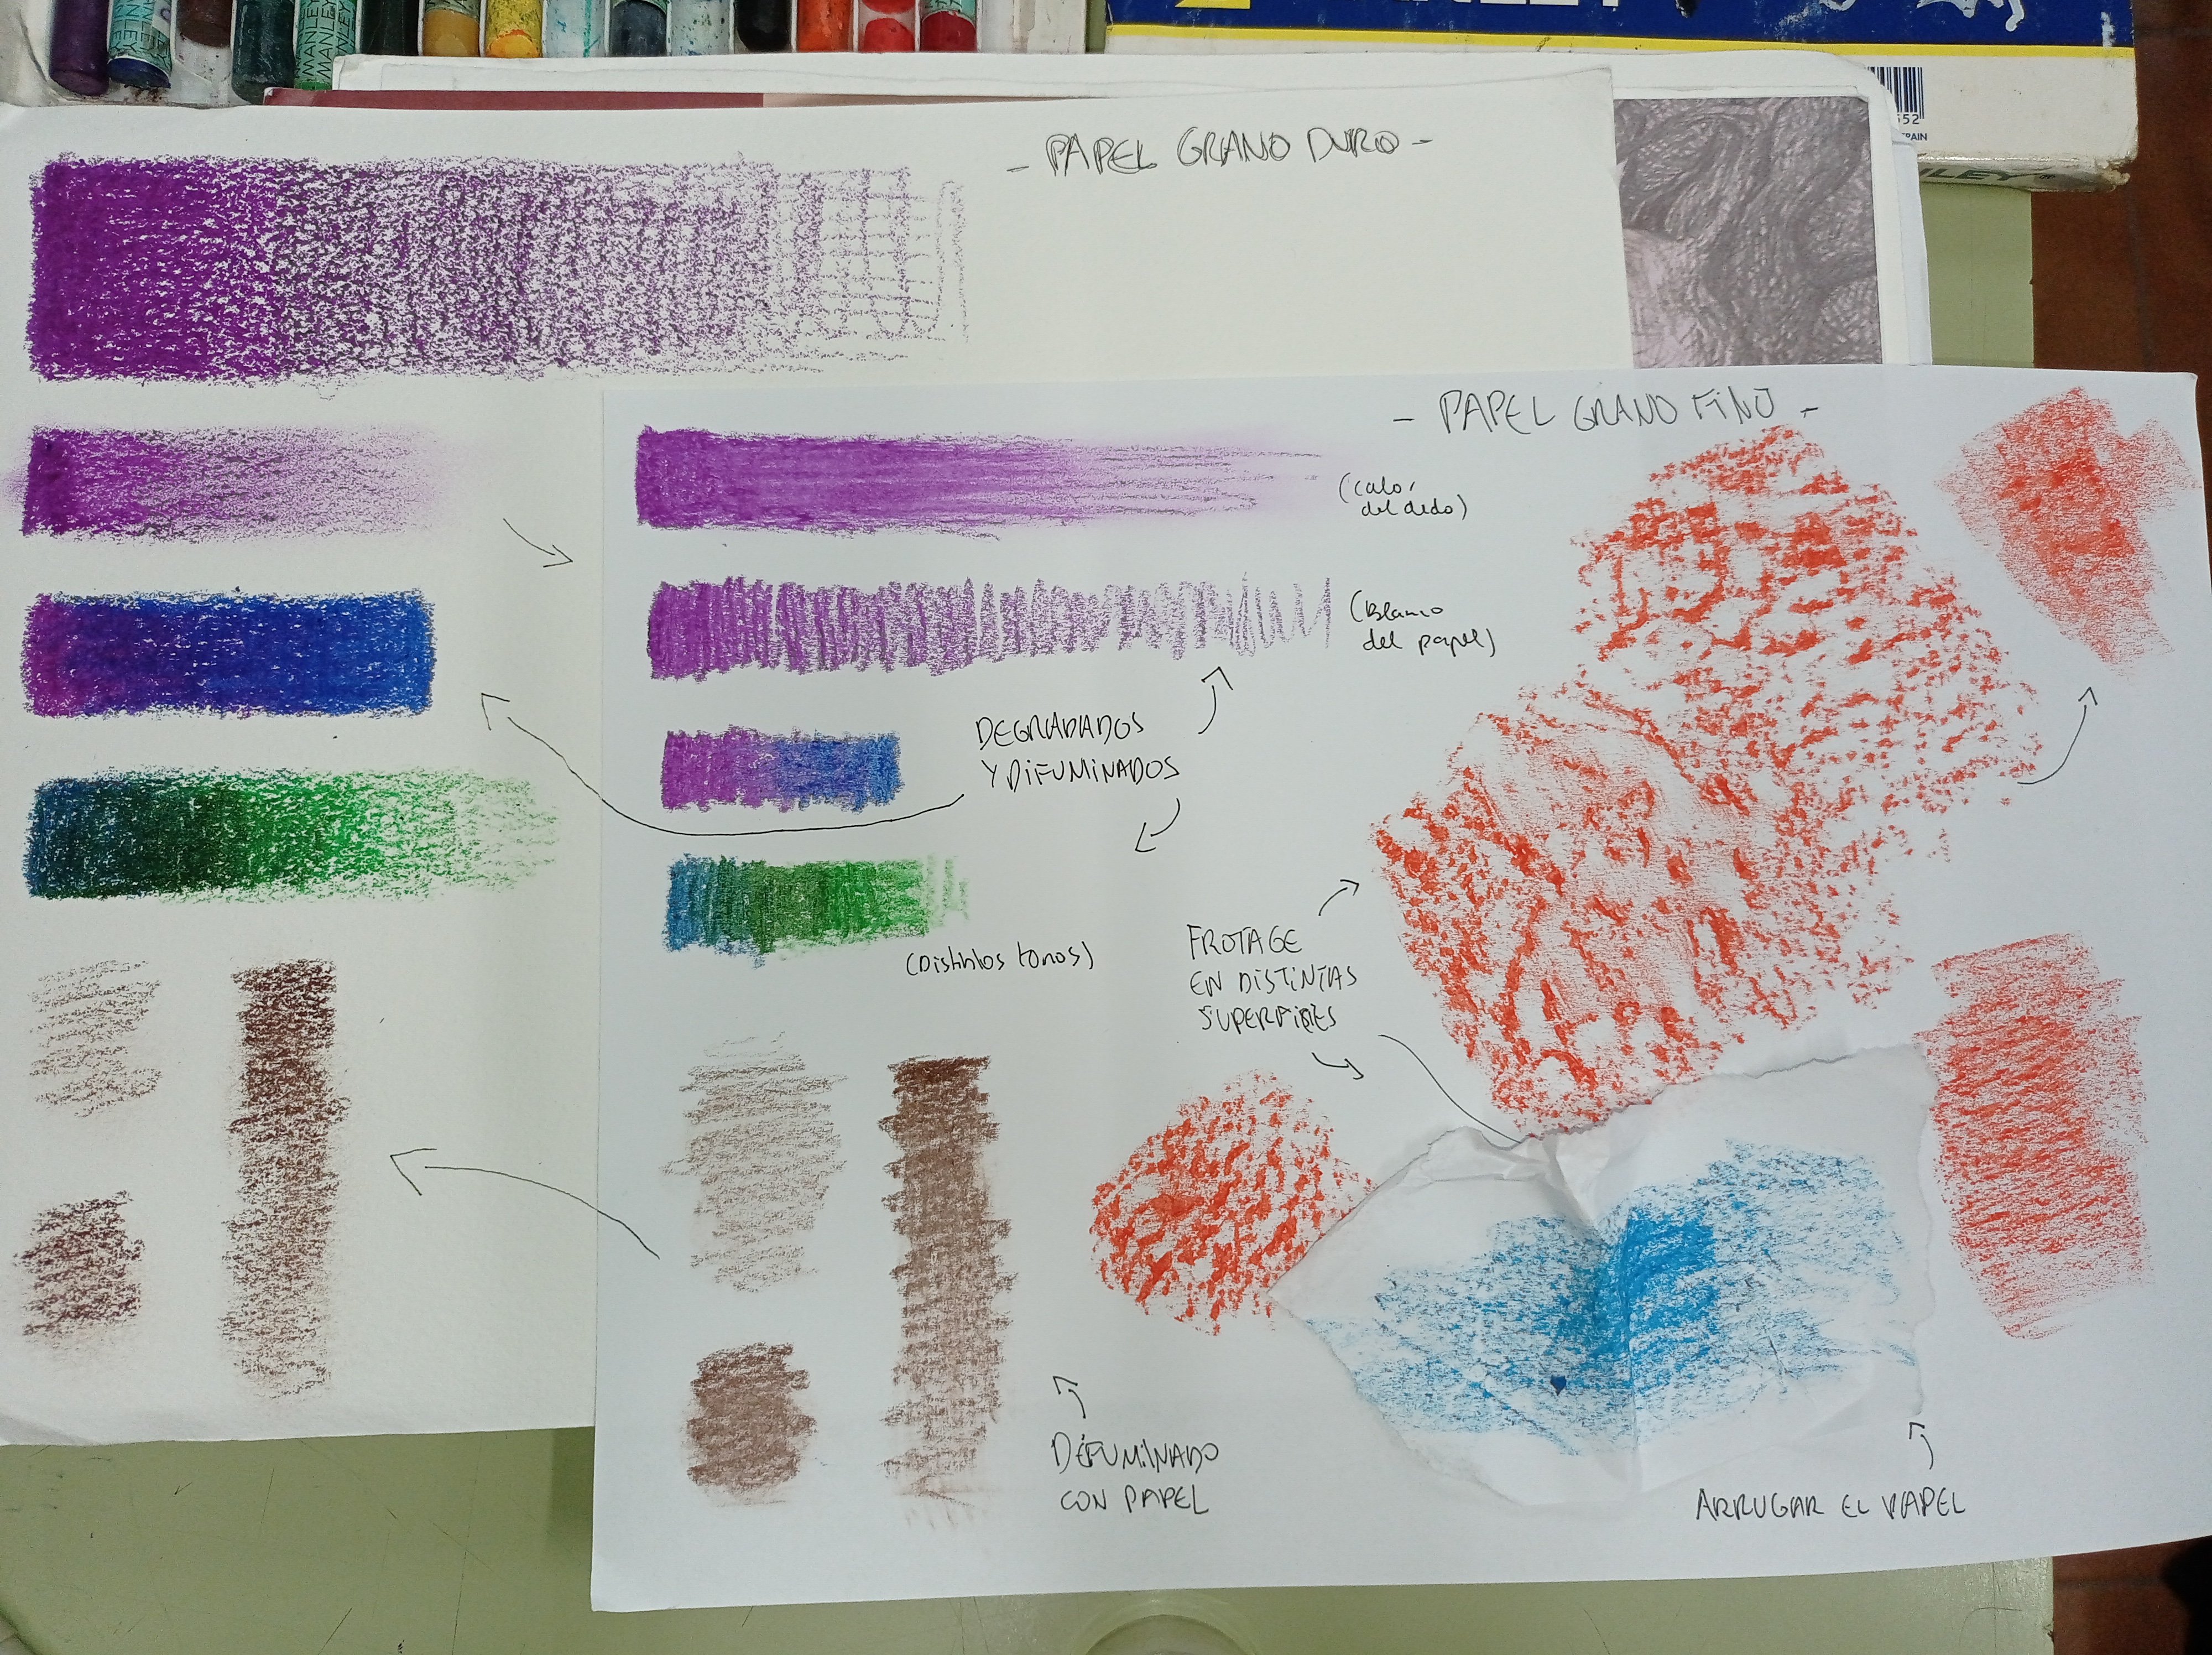 MANLEY
MANLEY
MANLEY
- PAPEL GRANO DURO -
- PAPEL GRANO FINO -
(Calor
del dedo)
(Blanco
del papel)
DEGRADADOS
Y DIFUMINADOS
(Distintos tonos)
FROTAGE
EN DISTINTAS
SUPERFICIES
DIFUMINADO
CON PAPEL
ARRUGAR EL PAPEL